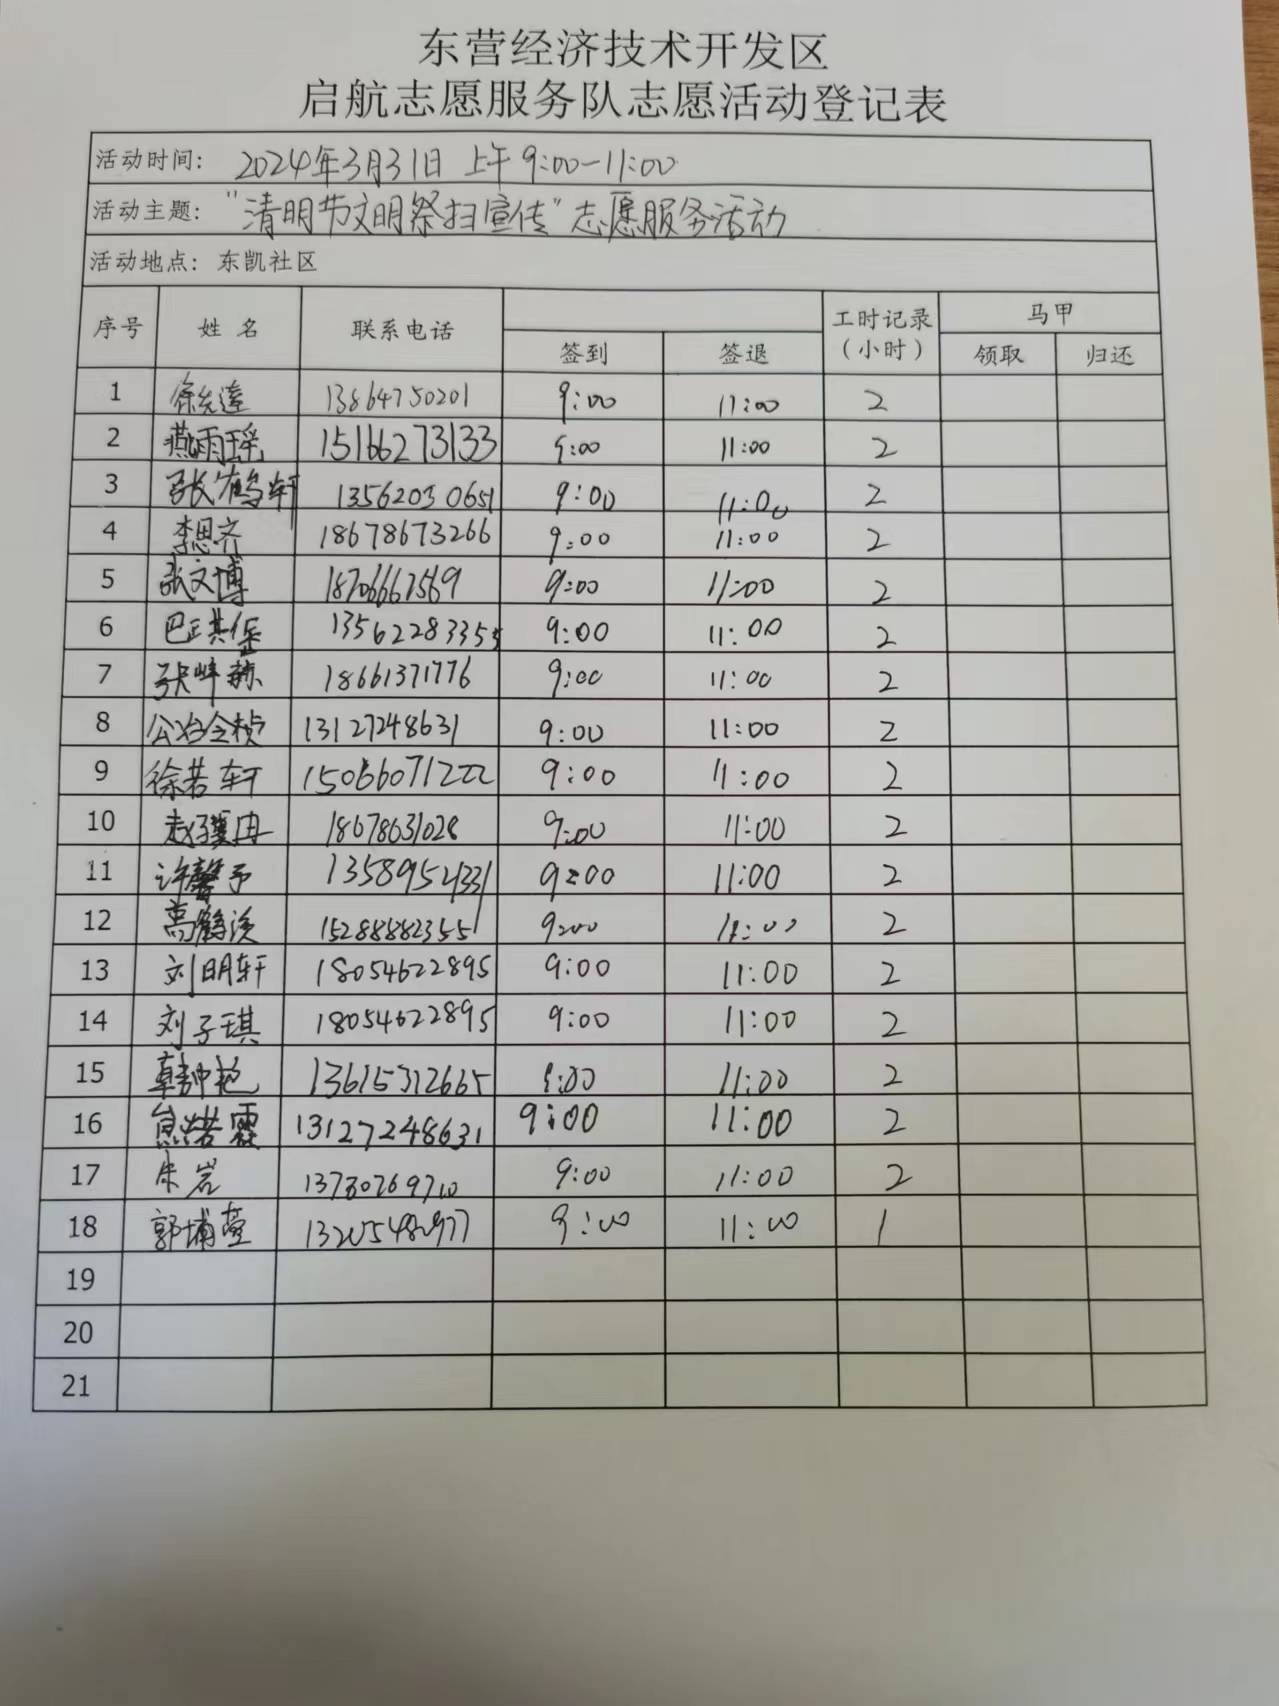 东营经济技术开发区
启航志愿服务队志愿活动登记表
活动时间: 2024年3月31日 上午 9:00-11:00
活动主题: "清明节文明祭扫宣传"志愿服务活动
活动地点: 东凯社区
序号 姓名 联系电话 签到 签退 工时记录(小时) 马甲 领取 归还
1 13864750201 9:00 11:00 2
2 燕雨瑶 15166273133 9:00 11:00 2
3 张鹤轩 13562030651 9:00 11:00 2
4 李思齐 18678673266 9:00 11:00 2
5 张文博 18706661569 9:00 11:00 2
6 13562283355 9:00 11:00 2
7 18661371776 9:00 11:00 2
8 13127248631 9:00 11:00 2
9 徐若轩 15066071222 9:00 11:00 2
10 18678631028 9:00 11:00 2
11 许馨予 13589952331 9:00 11:00 2
12 高鹤溪 15288882355 9:00 11:00 2
13 刘明轩 18054622895 9:00 11:00 2
14 刘子琪 18054622895 9:00 11:00 2
15 13615312665 9:00 11:00 2
16 13127248631 9:00 11:00 2
17 朱岩 9:00 11:00 2
18 13205480977 9:00 11:00 1
19
20
21